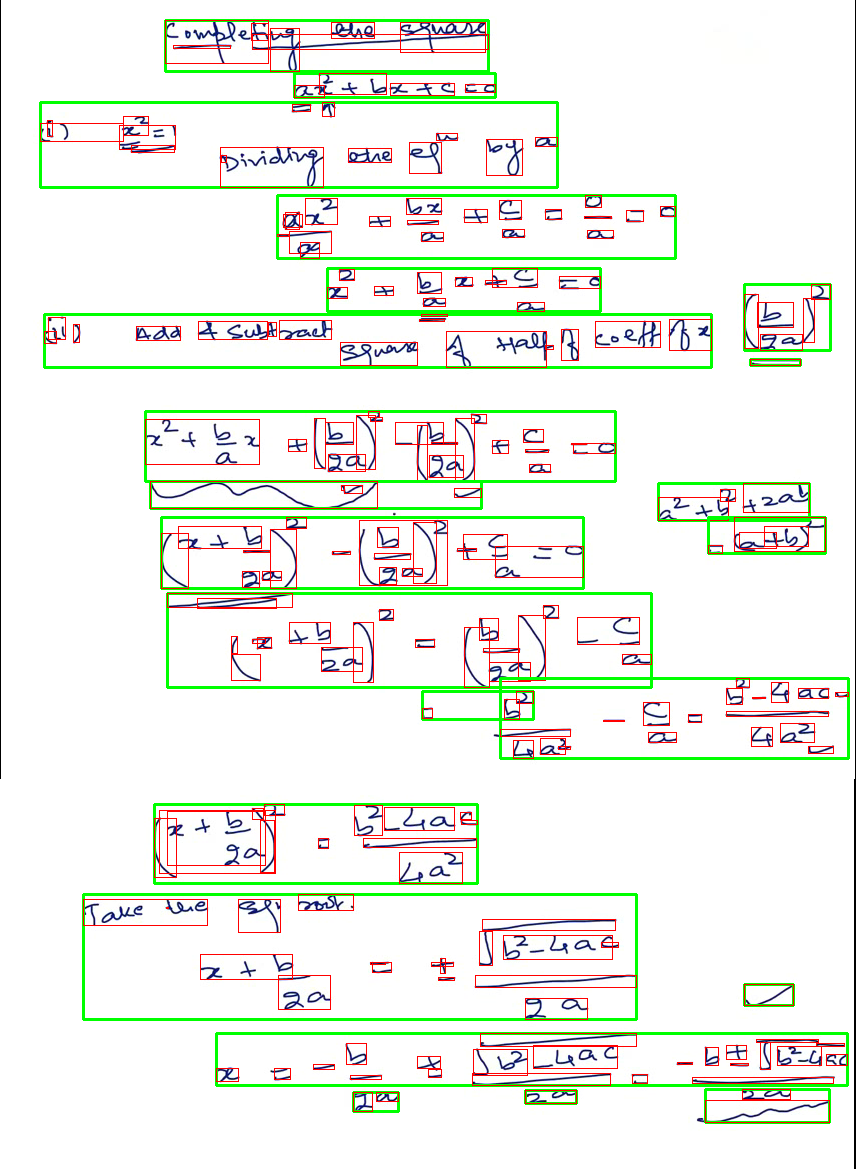 Completing the square
ax² + bx + c = 0
(i) x² = 1
Dividing the eqⁿ by a
ax²/a + bx/a + c/a = 0/a = 0
x² + b/a x + c/a = 0
(ii) Add & Subtract square of Half of coeff of x (b/2a)²
x² + b/a x + (b/2a)² - (b/2a)² + c/a = 0
a² + b² + 2ab
= (a+b)²
(x + b/2a)² - (b/2a)² + c/a = 0
(x + b/2a)² = (b/2a)² - c/a
= b²/4a² - c/a = b² - 4ac/4a²
(x + b/2a)² = b² - 4ac/4a²
Take the sq root.
x + b/2a = ± √b² - 4ac/2a
x = - b/2a ± √b² - 4ac/2a = - b ± √b² - 4ac/2a